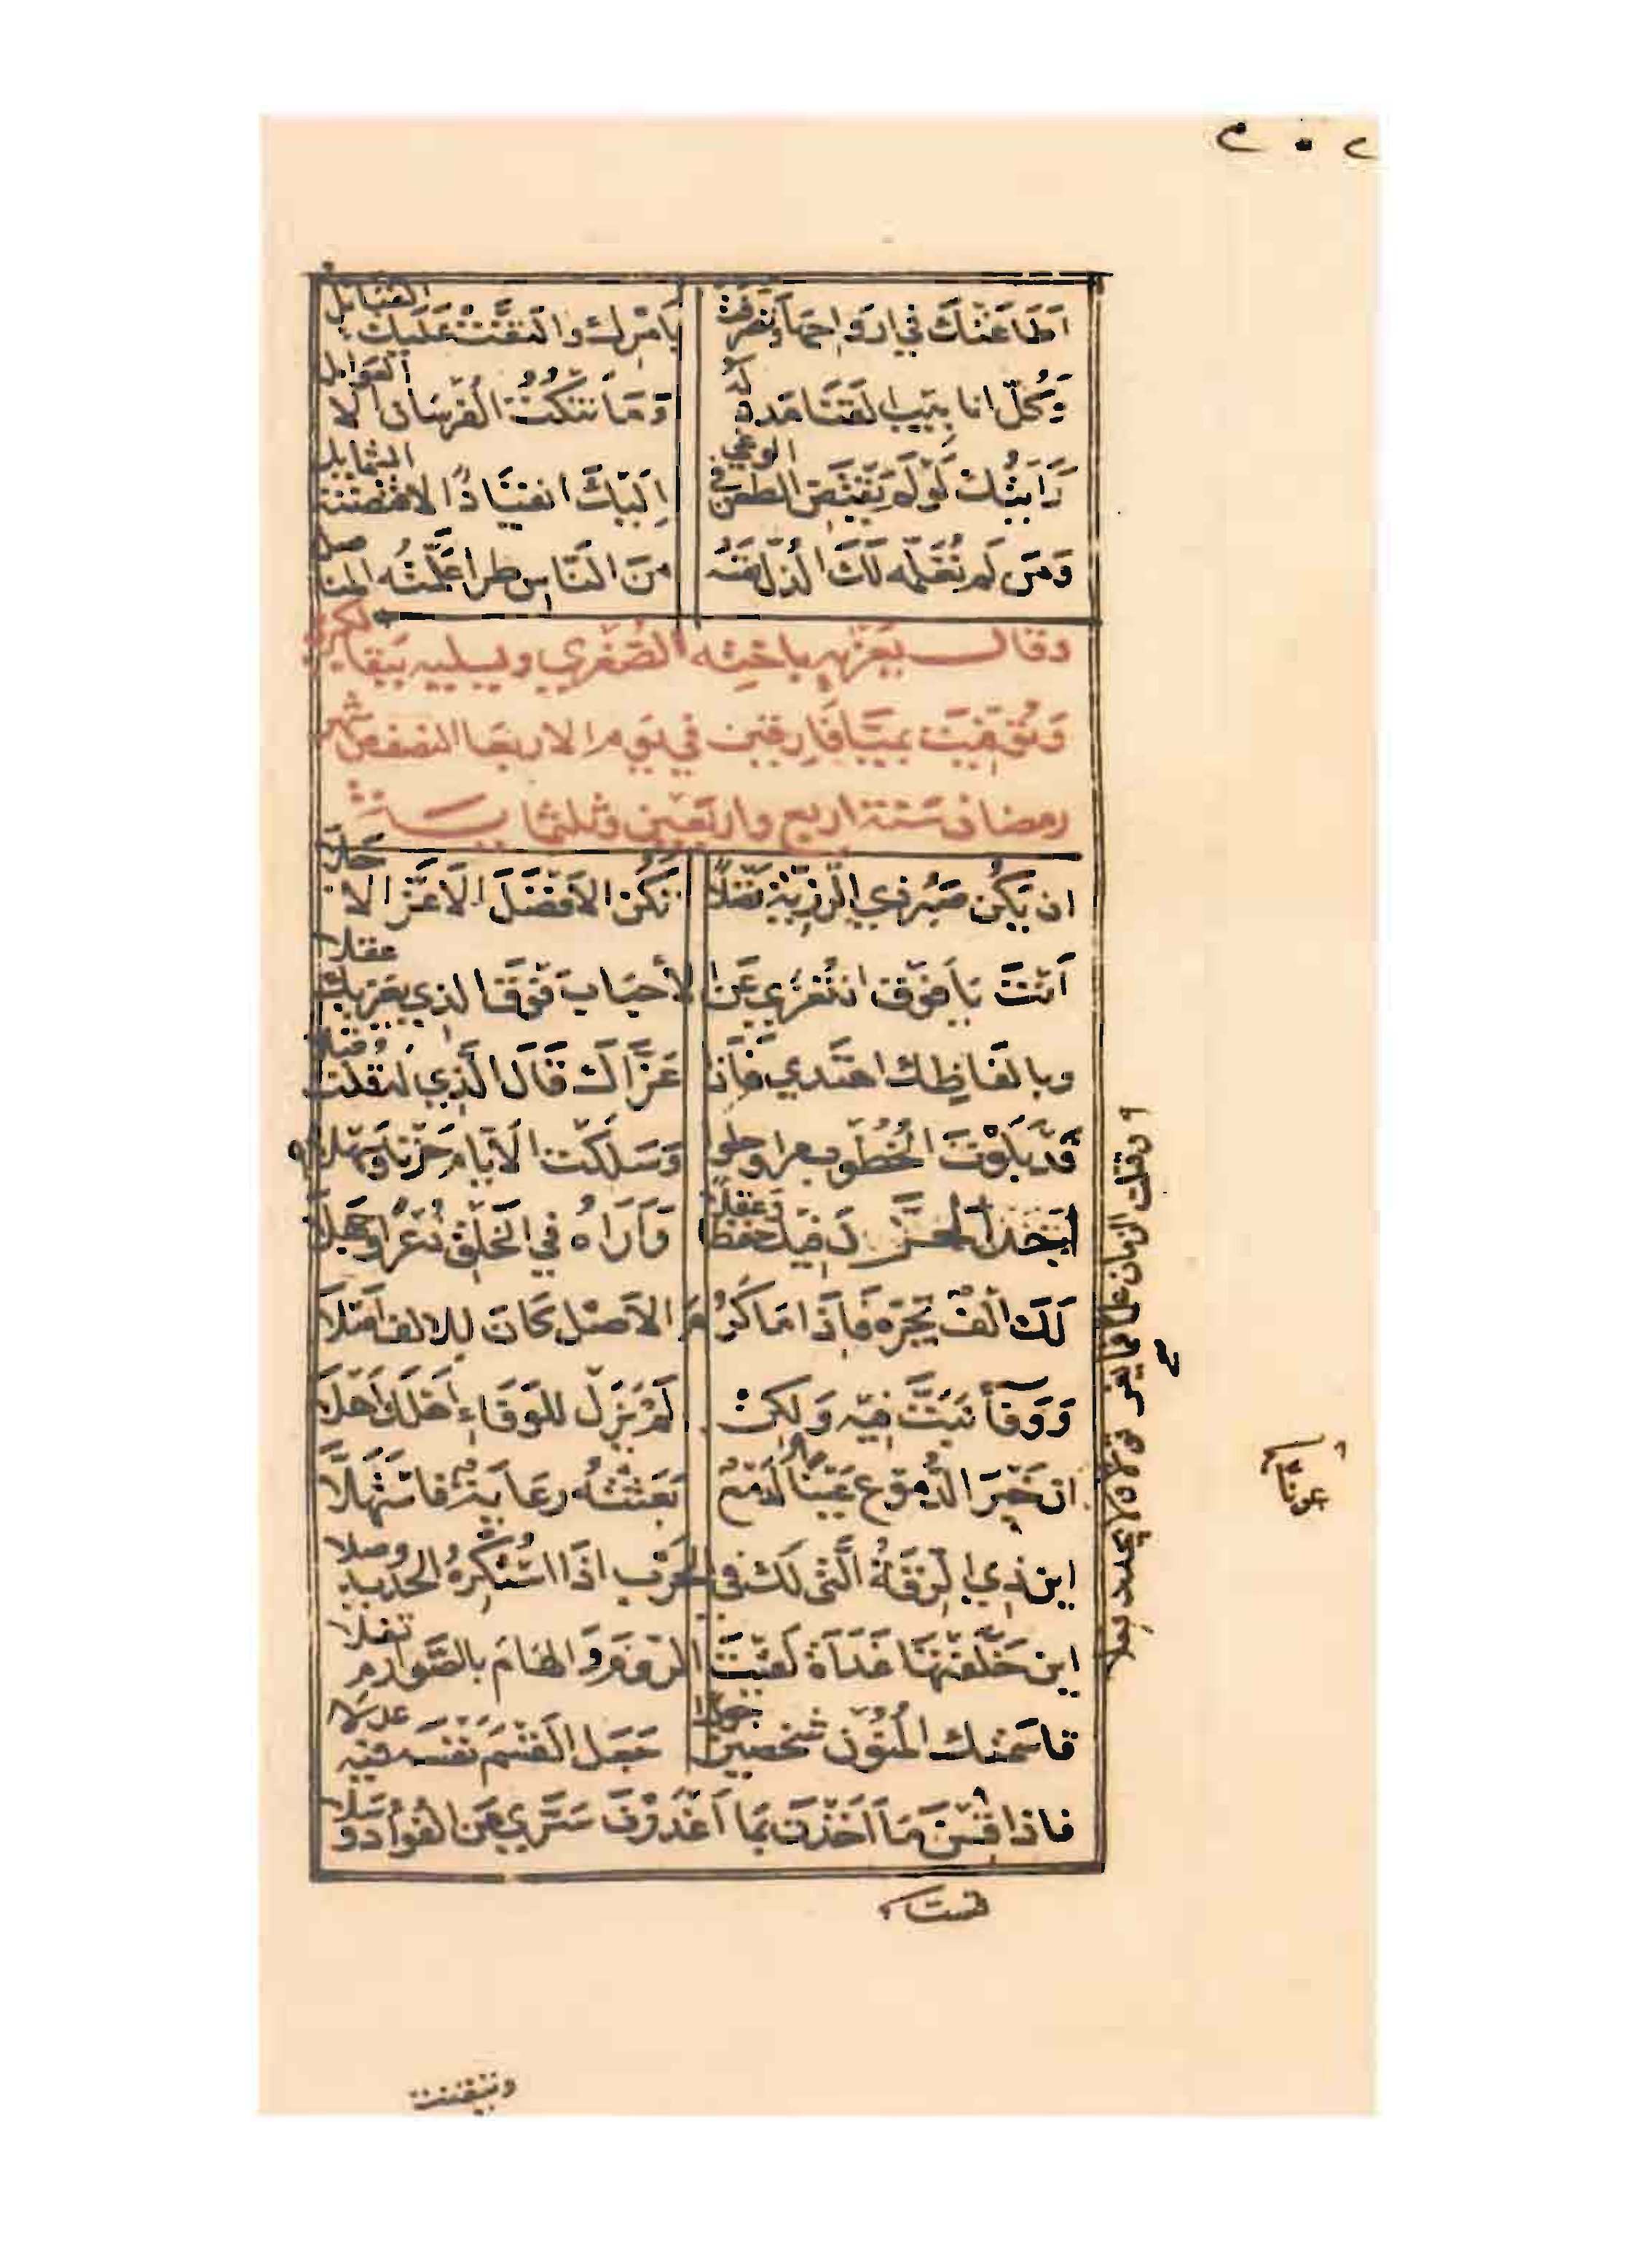 اَطَاعَتْكَ في ارواحِها وتَصرَّفَتْ بِامْرِكَ والتَفَّتْ عَلَيكَ القبَايلُ
وَكُلّ انابيب القَنَا مَدد لَهُ وَمَا تَنْكُتُ الفُرْسَانَ الا العَوامل
رَاَيتُكَ لَوْ لَم يَقْتَضِ الطعن في الوغى اِلَيْكَ انقِيَادًا لاقتضته الشمايل
وَمَن لَم تُعَلّمه لَكَ الذلّ نفسُه مِنَ النَاسِ طرا عَلَّمَتْه المناصل
وقال يعَزّيه باختِه الصُغري ويسليه ببقا الكبرى
وَتُوُفّيَت بمَيَّافَارِقين في يَوم الاربعا النصف من شهر
رمضان سَنَة اربع واربعين وثلثمايـــة
ان يَكُن صَبْر ذي الرَزِيّة فَضْلاً تكُن الاَفضَلَ الاَعَزَّ الاجَلاّ
اَنْتَ يَا فَوْق ان تُعَزى عَن الأحبَاب فَوْقَ الذي يعزيك عقلا
وبالفَاظِك اهتَدي فَاِذا عَزَّاكَ قَالَ الَّذي لَه قُلت قبلا
قَد بَلَوْتَ الخُطُوب مرا وحلوا وَسَلَكْتَ الاَيّام حَزْنا وَسَهْلا
وقتلت الزمان علما فما يغرب قولا ولا يجدد فعلا
اَجِدُ الحزن فيك حفظًا وعقلا وَاَرَاهُ في الخَلْقِ ذُعْرًا وجهلا
لَكَ اَلْفٌ يَجُرّه فَاِذَا مَا كَرُمَ الاَصْل كَانَ للالف اَصْلاَ
وَوَفَاً نَبَتَّ فيْه وَلكِنْ لَمْ يَزَل للوَفَاءِ اَهلكَ اَهلاَ
ان خَيْرَ الدُّموع عَيْناً لَدَمْعٌ بَعَثَتْهُ رعَايةٌ فاستَهلاَّ
اين ذي الرِقَّةُ الَّتى لَك في الحَرْب اذَا اسْتُكْرِهُ الحَديد وصلا
اين خَلَّفْتَهَا غَدَاَةَ لَقيْتَ الرّومَ وَالهَامَ بالصَّوارم تفلا
قاسَمتك المُنُوْن شخصين جورا جَعَل القَسْمَ نَفْسَه فيْه عدلا
فاذا قِسْتَ مَا اَخَذْتَ بمَا اَغْدَرْنَ سَرَّي عَن الفُوأد وسلا
وتيقنت